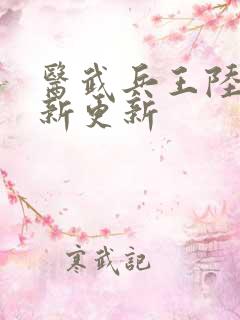 醫武兵王陸
新更新
寒武記